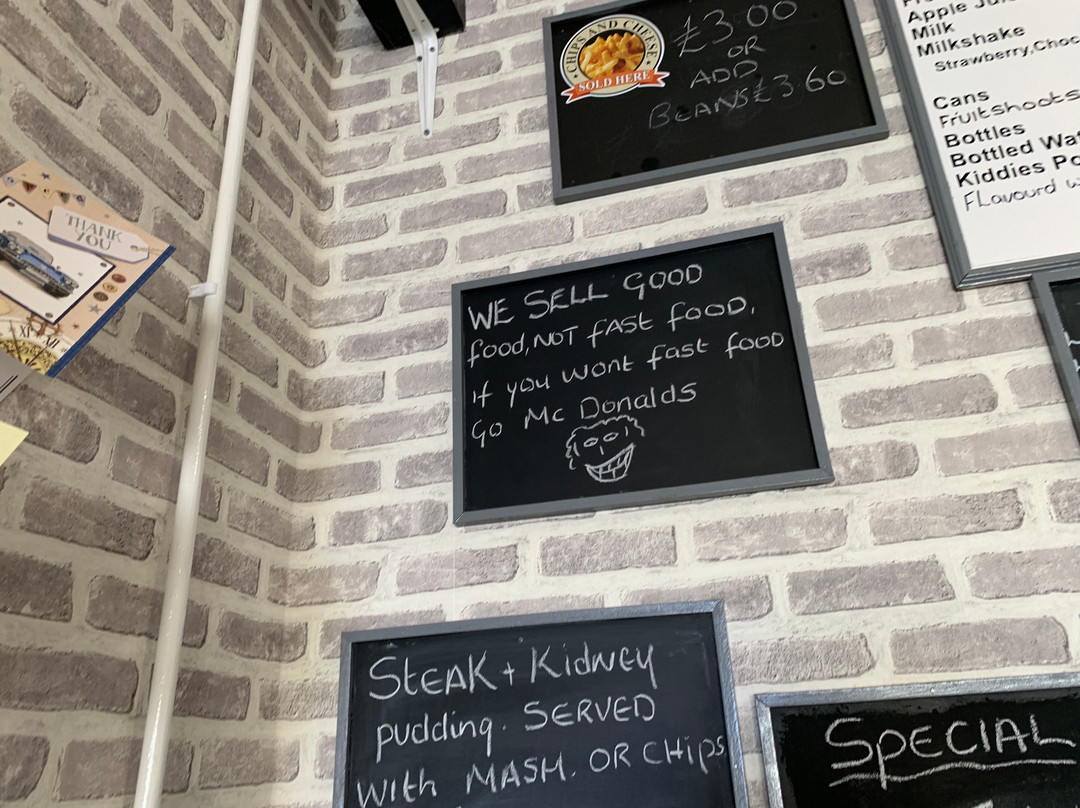 CHIPS AND CHEESE
SOLD HERE
£3.00
OR
ADD
BEANS £3.60
Apple
Milk
Milkshake
Strawberry,
Cans
Fruitshoots
Bottles
Bottled
Kiddies
Flavourd
THANK
YOU
XI XII
WE SELL GOOD
food, NOT fast food,
if you wont fast food
Go Mc Donalds
Steak + Kidney
pudding. SERVED
With MASH. OR CHips
SpECIAL